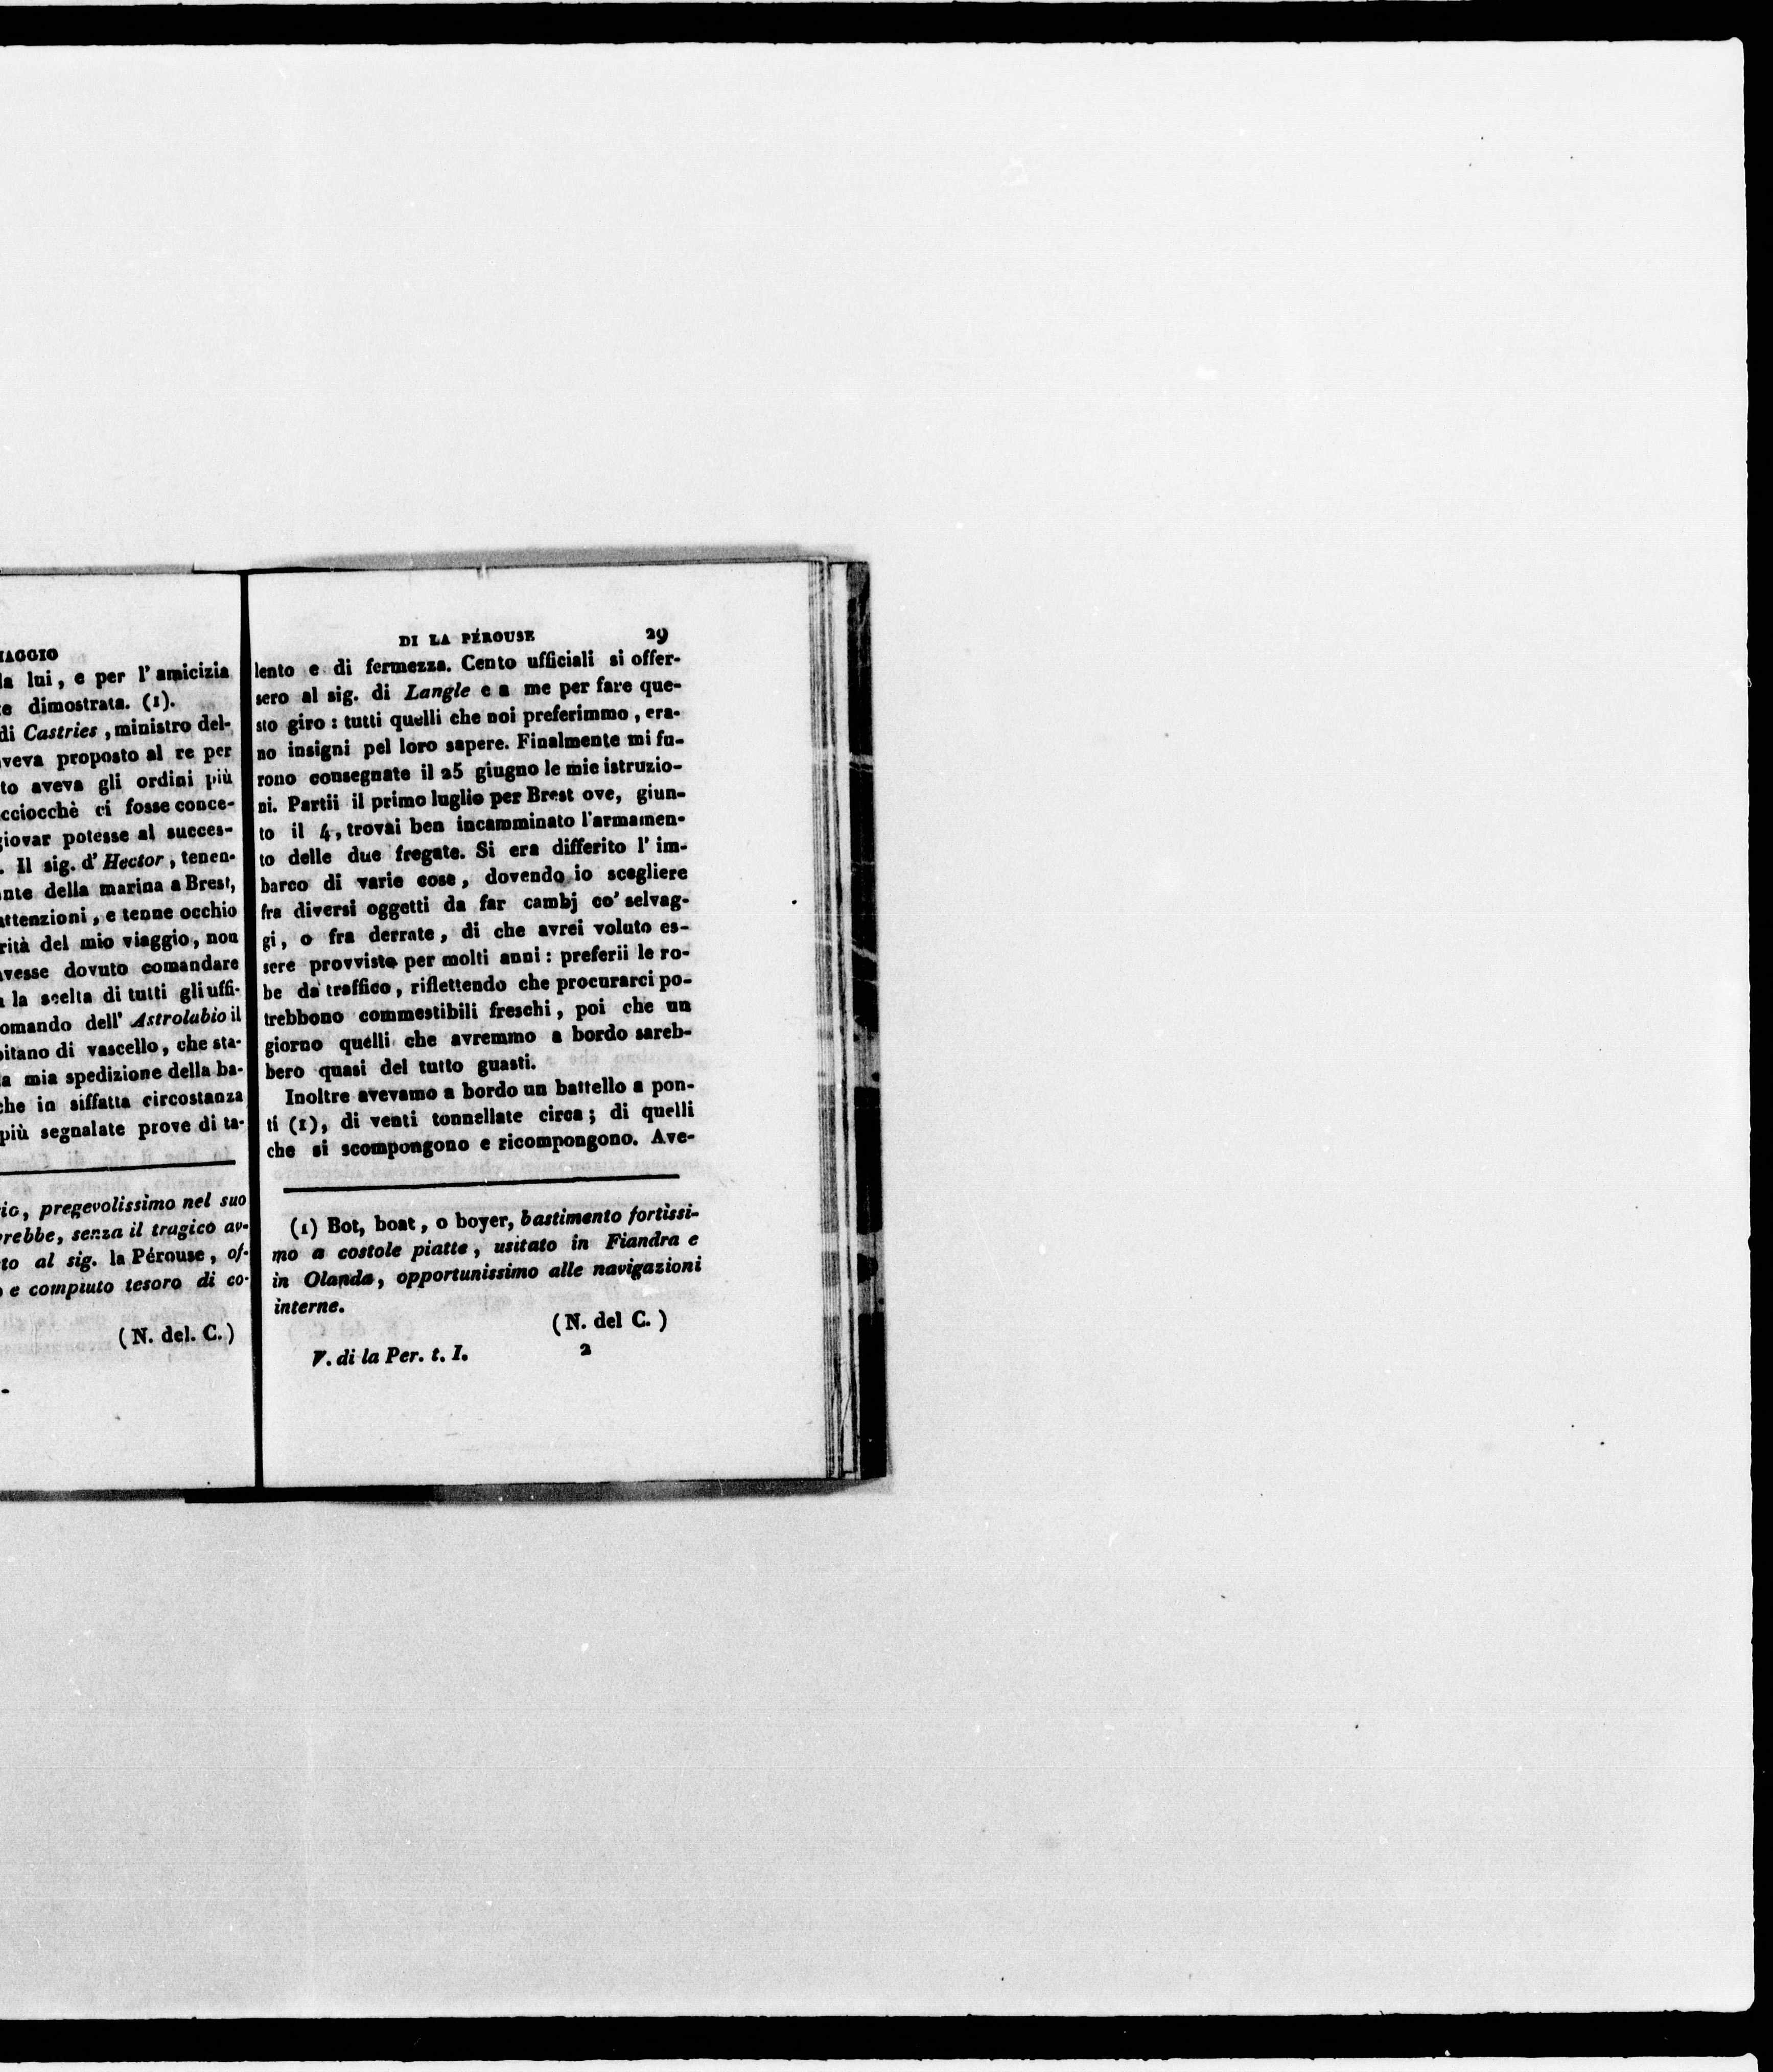 lui, e per l' amicizia
dimostrata. (1).
di Castries, ministro del-
proposto al re per
aveva gli ordini più
ci fosse conce-
potesse al succes-
Il sig. d' Hector, tenen-
della marina a Brest,
e tenne occhio
del mio viaggio, non
dovuto comandare
la scelta di tutti gli uffi-
dell' Astrolabio il
di vascello, che sta-
mia spedizione della ba-
che in siffatta circostanza
più segnalate prove di ta-
pregevolissimo nel suo
senza il tragico av-
al sig. la Pérouse, of-
e compiuto tesoro di co-
(N. del. C.)
DI LA PÉROUSE 29
lento e di fermezza. Cento ufficiali si offer-
sero al sig. di Langle e a me per fare que-
sto giro : tutti quelli che noi preferimmo, era-
no insigni pel loro sapere. Finalmente mi fu-
rono consegnate il 25 giugno le mie istruzio-
ni. Partii il primo luglio per Brest ove, giun-
to il 4, trovai ben incamminato l'armamen-
to delle due fregate. Si era differito l' im-
barco di varie cose, dovendo io scegliere
fra diversi oggetti da far cambj co' selvag-
gi, o fra derrate, di che avrei voluto es-
sere provvisto per molti anni : preferii le ro-
be da traffico, riflettendo che procurarci po-
trebbono commestibili freschi, poi che un
giorno quelli che avremmo a bordo sareb-
bero quasi del tutto guasti.
Inoltre avevamo a bordo un battello a pon-
ti (1), di venti tonnellate circa; di quelli
che si scompongono e ricompongono. Ave-
(1) Bot, boat, o boyer, bastimento fortissi-
mo a costole piatte, usitato in Fiandra e
in Olanda, opportunissimo alle navigazioni
interne.
(N. del C.)
V. di la Per. t. I. 2